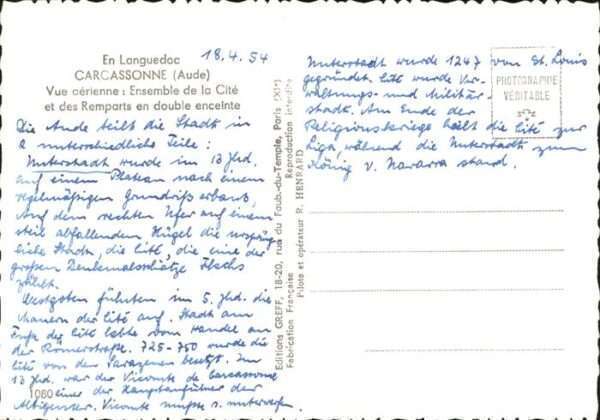 En Languedoc
CARCASSONNE (Aude)
Vue aérienne : Ensemble de la Cité
et des Remparts en double enceinte
18.4.54
Die Aude teilt die Stadt in
2 unterschiedliche Teile:
Unterstadt wurde im 13 Jhd.
auf einem Plateau nach einem
regelmäßigen Grundriß erbaut,
Auf dem rechten Ufer auf einem
steil abfallenden Hügel die ursprüng-
liche Stadt, die Cité, die eine der
großen Denkmalschätze
zählt.
Westgoten führten im 5. Jhd. die
Mauern der Cité auf. Stadt am
Fuße der Cité lebte vom Handel an
der Römerstraße. 725-750 wurde die
Cité von den Sarazenen besetzt. Im
13 Jhd. war der Vicomte de Carcassonne
einer der Hauptanführer der
Albigenser. Vicomte mußte s. unterwerfen
1080
Editions GREFF, 18-20, rue du Faub.-du-Temple, Paris (XIe)
Fabrication Française Reproduction interdite
Pilote et opérateur R. HENRARD
Unterstadt wurde 1247 von St. Louis
gegründet. Cité wurde Ver-
waltungs- und Militär-
stadt. Am Ende der
Religionskriege hält die Cité zur
Liga, während die Unterstadt zum
König v. Navarra stand.
PHOTOGRAPHIE
VÉRITABLE